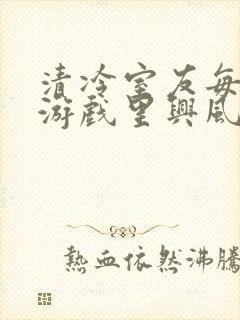 清冷室友每
游戏里興風
熱血依然沸騰